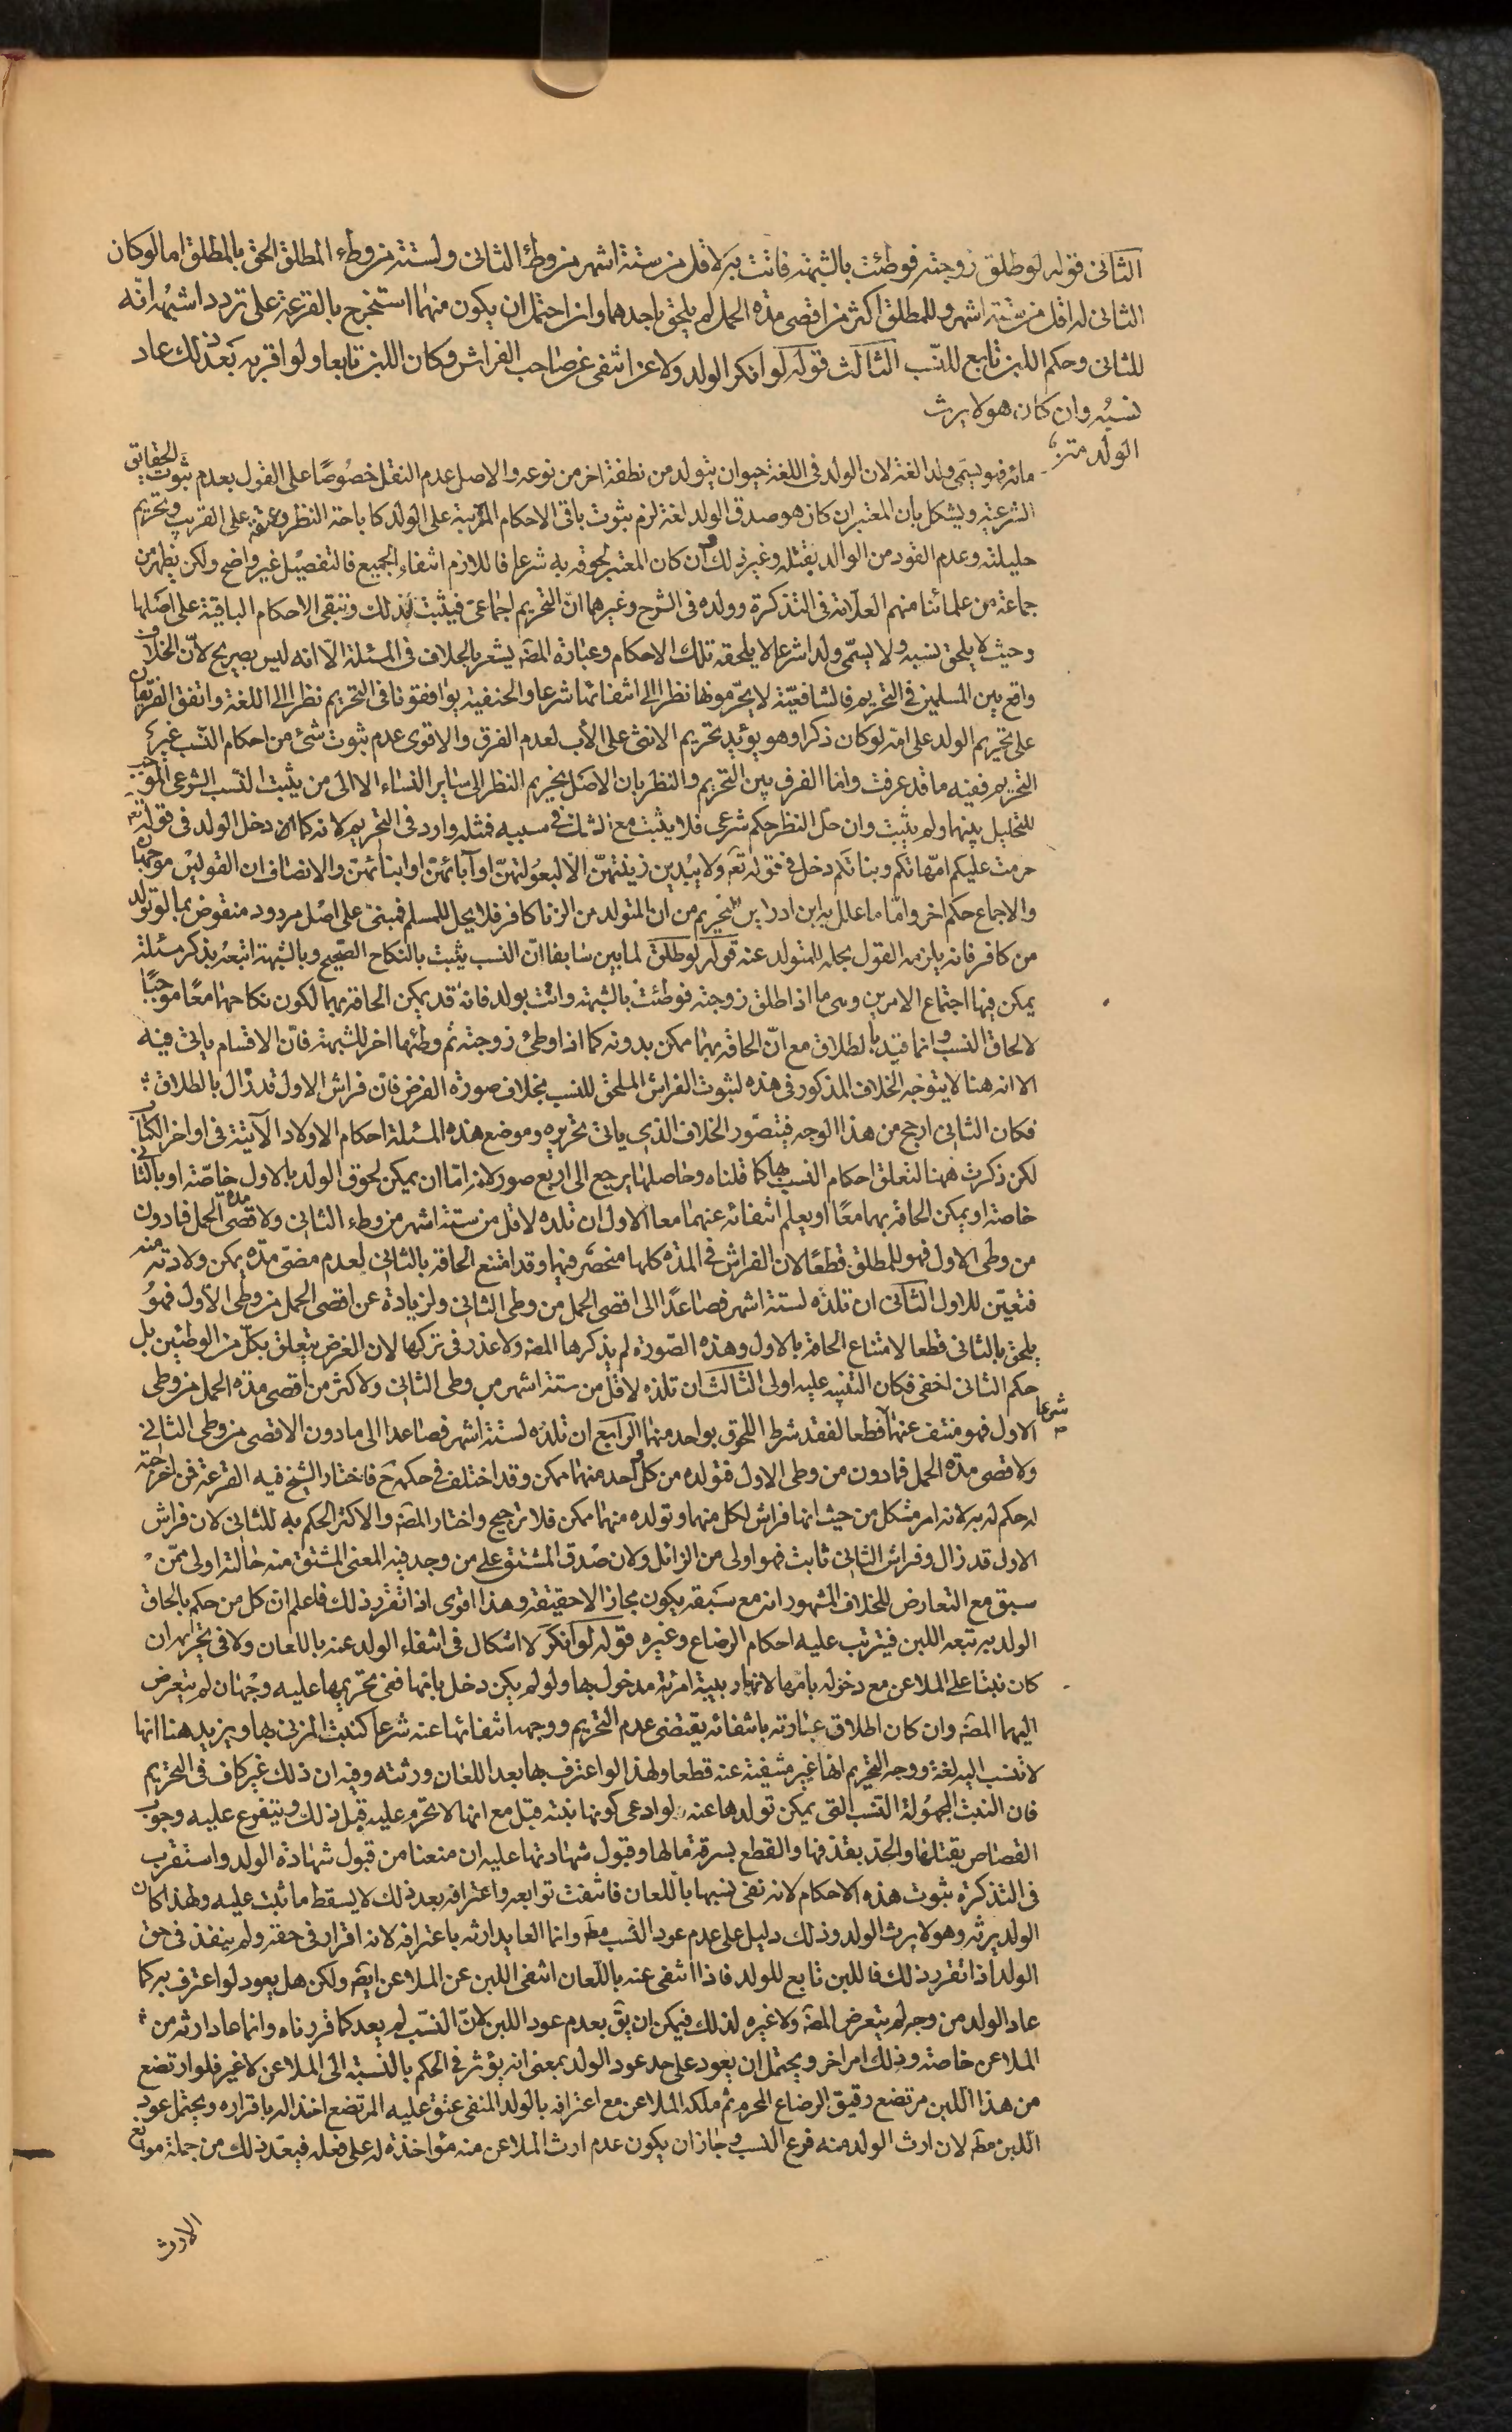 الثانى قوله لو طلق زوجته فوطئت بالشبهة فاتت به لاقل من ستة اشهر من وطئ الثانى ولستة من وطء المطلق الحق بالمطلق اما لو كان
الثانى له اقل من ستة اشهر وللمطلق اكثر من اقصى مدة الحمل لم يلحق باحدهما وان احتمل ان يكون منهما استخرج بالقرعة على تردد اشبهه انه
للثانى وحكم اللبن تابع للنسب الثالث قوله لو انكر الولد ولاعن انتفى عن صاحب الفراش وكان اللبن تابعا ولو اقر به بعد ذلك عاد
نسبه وان كان هو لا يرث
الولد متن
مائه فهو يسمى ولدا لغة لان الولد فى اللغة حيوان يتولد من نطفة اخر من نوعه والاصل عدم النقل خصوصًا على القول بعدم ثبوت الحقايق
الشرعية ويشكل بان المعتبر ان كان هو صدق الولد لغة لزم ثبوت باقى الاحكام المترتبة على الولد كاباحة النظر وعتقه على القريب وتحريم
حليلته وعدم القود من الوالد بقتله وغير ذلك وان كان المعتبر لحوقه به شرعا فاللازم انتفاء الجميع فالتفصيل غير واضح ولكن يظهر من
جماعة من علمائنا منهم العلامة فى التذكرة وولده فى الشرح وغيرهما ان التحريم اجماعى فيثبت لذلك وتبقى الاحكام الباقية على اصلها
وحيث لا يلحق نسبه ولا يسمى ولدا شرعا لا يلحقه تلك الاحكام وعبارة المصّ يشعر بالخلاف فى المسئلة الا انه ليس بصريح لانّ الخلاف
واقع بين المسلمين فى التحريم فالشافعيّة لا يحرّمونها نظرا الى انتفائها شرعا والحنفية يوافقونا فى التحريم نظرا الى اللغة واتفق الفريقان
على تحريم الولد على امه لو كان ذكرا وهو يؤيد تحريم الانثى على الأب لعدم الفرق والاقوى عدم ثبوت شئ من احكام النّسب غير
التحريم ففيه ما قد عرفت وانما الفرق بين التحريم والنظر بان الاصل تحريم النظر الى سائر النساء الا الى من يثبت النّسب الشرعى الموجب
للتحليل بينهما ولم يثبت وان حل النظر حكم شرعى فلا يثبت مع الشك فى سببه فمثله وارد فى التحريم لانه كما ان دخل الولد فى قوله تع
حرمت عليكم امهاتكم وبناتكم دخل فى قوله تع ولا يبدين زينتهنّ الّا لبعولتهنّ او آبائهنّ او ابنائهنّ والانصاف ان القولين موجهان
والاجماع حكم اخر وامّا ما علل به ابن ادريس التحريم من ان المتولد من الزنا كافر فلا يحل للمسلم فمبنى على اصل مردود منقوض بما لو تولد
من كافر فانه يلزمه القول بحله للمتولد عنه قوله لو طلق لما بين سابقا انّ النسب يثبت بالنكاح الصحيح وبالشبهة اتبعه بذكر مسئلة
يمكن فيها اجتماع الامرين وهى ما اذا طلق زوجته فوطئت بالشبهة واتت بولد فانه قد يمكن الحاقه بهما لكون نكاحهما معًا موجبًا
لالحاق النسب وانما قيّد بالطلاق مع انّ الحاقه بهما ممكن بدونه كما اذا وطئ زوجته ثم وطئها اخر للشبهة فانّ الاقسام ياتى فيه
الا انه هنا لا يتوجه الخلاف المذكور فى هذه لثبوت الفراش الملحق للنسب بخلاف صورة الفرض فان فراش الاول قد زال بالطلاق
فكان الثانى ارجح من هذا الوجه فيتصور الخلاف الذى ياتى تحريره وموضع هذه المسئلة احكام الاولاد الآتية فى اواخر الكتاب
لكن ذكرت هنا لتعلق احكام النسب بها كما قلناه وحاصلها يرجع الى اربع صور لانه امّا ان يمكن لحوق الولد بالاول خاصّة او بالثانى
خاصة او يمكن الحاقه بهما معًا او يعلم انتفائه عنهما معا الاول ان تلده لاقل من ستة اشهر من وطء الثانى ولاقصى مدة الحمل فما دون
من وطى الاول فهو للمطلق قطعًا لان الفراش فى المدة كلها منحصر فيها وقد امتنع الحاقه بالثانى لعدم مضىّ مدّة يمكن ولادته منه
فتعيّن للاول الثانى ان تلده لستة اشهر فصاعدًا الى اقصى الحمل من وطى الثانى ولزيادة عن اقصى الحمل من وطى الاول فهو
يلحق بالثانى قطعا لامتناع الحاقه بالاول وهذه الصّورة لم يذكرها المصّ ولا عذر فى تركها لان الغرض يتعلق بكلّ من الوطئين بل
حكم الثانى اخفى فكان التنبيه عليه اولى الثالث ان تلده لاقل من ستة اشهر من وطى الثانى ولاكثر من اقصى مدة الحمل من وطى
الاول فهو منتف عنهما شرعا قطعا لفقد شرط اللحوق بواحد منهما الرابع ان تلده لستة اشهر فصاعدا الى ما دون الاقصى من وطى الثانى
ولاقصى مدة الحمل فما دون من وطى الاول فتولده من كل واحد منهما ممكن وقد اختلف فى حكمه ح فاختار الشيخ فيه القرعة فمن اخرجته
له حكم له به لانه امر مشكل من حيث انها فراش لكل منهما وتولده منهما ممكن فلا ترجيح واختار المصّ والاكثر الحكم به للثانى لان فراش
الاول قد زال وفراش الثانى ثابت فهو اولى من الزائل ولان صدق المشتق على من وجد فيه المعنى المشتق منه حالته اولى ممّن
سبق مع التعارض للخلاف المشهور انه مع سبقه يكون مجازا لا حقيقة وهذا اقوى اذا تقرر ذلك فاعلم ان كل من حكم بالحاق
الولد به تبعه اللبن فيترتب عليه احكام الرضاع وغيره قوله لو انكر لا اشكال فى انتفاء الولد عنه باللعان ولا فى تحريمه ان
كان بنتا على الملاعن مع دخوله بامّها لانها ربيبة امرئة مدخول بها ولو لم يكن دخل بامها ففى تحريمها عليه وجهان لم يتعرض
اليهما المصّ وان كان اطلاق عبارته بانتفائه يقتضى عدم التحريم ووجهه انتفائها عنه شرعا كبنت المزنى بها ويزيد هنا انها
لا تنسب اليه لغة ووجه التحريم انها غير منفية عنه قطعا ولهذا لو اعترف بها بعد اللعان ورثته وفيه ان ذلك غير كاف فى التحريم
فان البنت المجهولة النّسب التى يمكن تولدها عنه لو ادعى كونها بنته قبل مع انها لا تحرم عليه قبل ذلك ويتفرع عليه وجوب
القصاص بقتلها والحدّ بقذفها والقطع بسرقة مالها وقبول شهادتها عليه ان منعنا من قبول شهادة الولد واستقرب
فى التذكرة ثبوت هذه الاحكام لانه نفى نسبها باللعان فانتفت توابعه واعترافه بعد ذلك لا يسقط ما ثبت عليه ولهذا كان
الولد يرثه وهو لا يرث الولد وذلك دليل على عدم عود النّسب مطّ وانما العايد ارثه باعترافه لانه اقرار فى حقه ولم ينفذ فى حق
الولد اذا تقرر ذلك فاللبن تابع للولد فاذا انتفى عنه باللّعان انتفى اللبن عن الملاعن ايضّ ولكن هل يعود لو اعترف به كما
عاد الولد من وجه لم يتعرض المصّ ولا غيره لذلك فيمكن ان يقّ بعدم عود اللبن لانّ النسب لم يعد كما قررناه وانما عاد ارثه من
الملاعن خاصة وذلك امر اخر ويحتمل ان يعود على حد عود الولد بمعنى انه يؤثر فى الحكم بالنّسبة الى الملاعن لا غير فلو ارتضع
من هذا اللبن مرتضع رقيق الرضاع المحرم ثم ملكه الملاعن مع اعترافه بالولد المنفى عتق عليه المرتضع اخذا له باقراره ويحتمل عود
اللبن مطّ لان ارث الولد منه فرع النّسب وجاز ان يكون عدم ارث الملاعن منه مؤاخذة له على فعله فيعد ذلك من جملة موانع
الارث